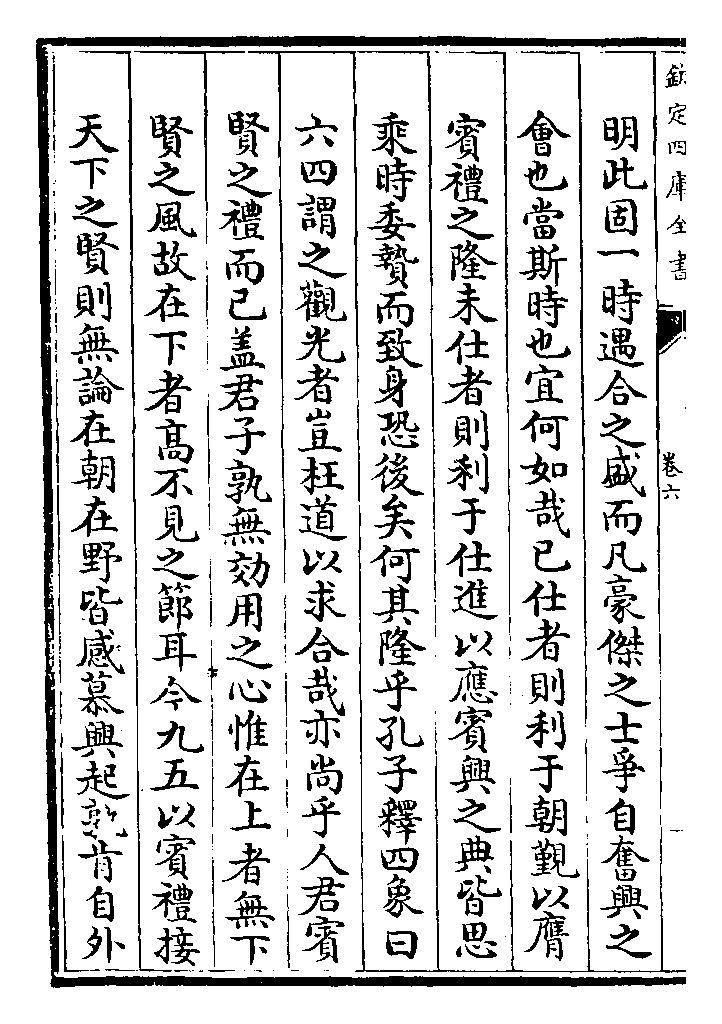 欽定四庫全書
卷六
明此固一時遇合之盛而凡豪傑之士爭自奮興之
會也當斯時也宜何如哉已仕者則利于朝覲以膺
賓禮之隆未仕者則利于仕進以應賓興之典皆思
乘時委贄而致身恐後矣何其隆乎孔子釋四象曰
六四謂之觀光者豈枉道以求合哉亦尚乎人君賓
賢之禮而已盖君子孰無効用之心惟在上者無下
賢之風故在下者高不見之節耳今九五以賓禮接
天下之賢則無論在朝在野皆感慕興起孰肯自外